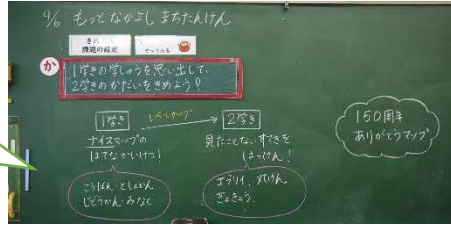 9/6 もっとなかよし まちたんけん
課題の設定
やってみる
か
1学きの学しゅうを思い出して、
2学きのかだいをきめよう!
1学き
レベルアップ
2学き
ナイスマップの
はてなかいけつ!
見たことないすてきを
はっけん!
こうばん・としょかん
じどうかん・みなと
ぎょきょう
150周年
ありがとうマップ